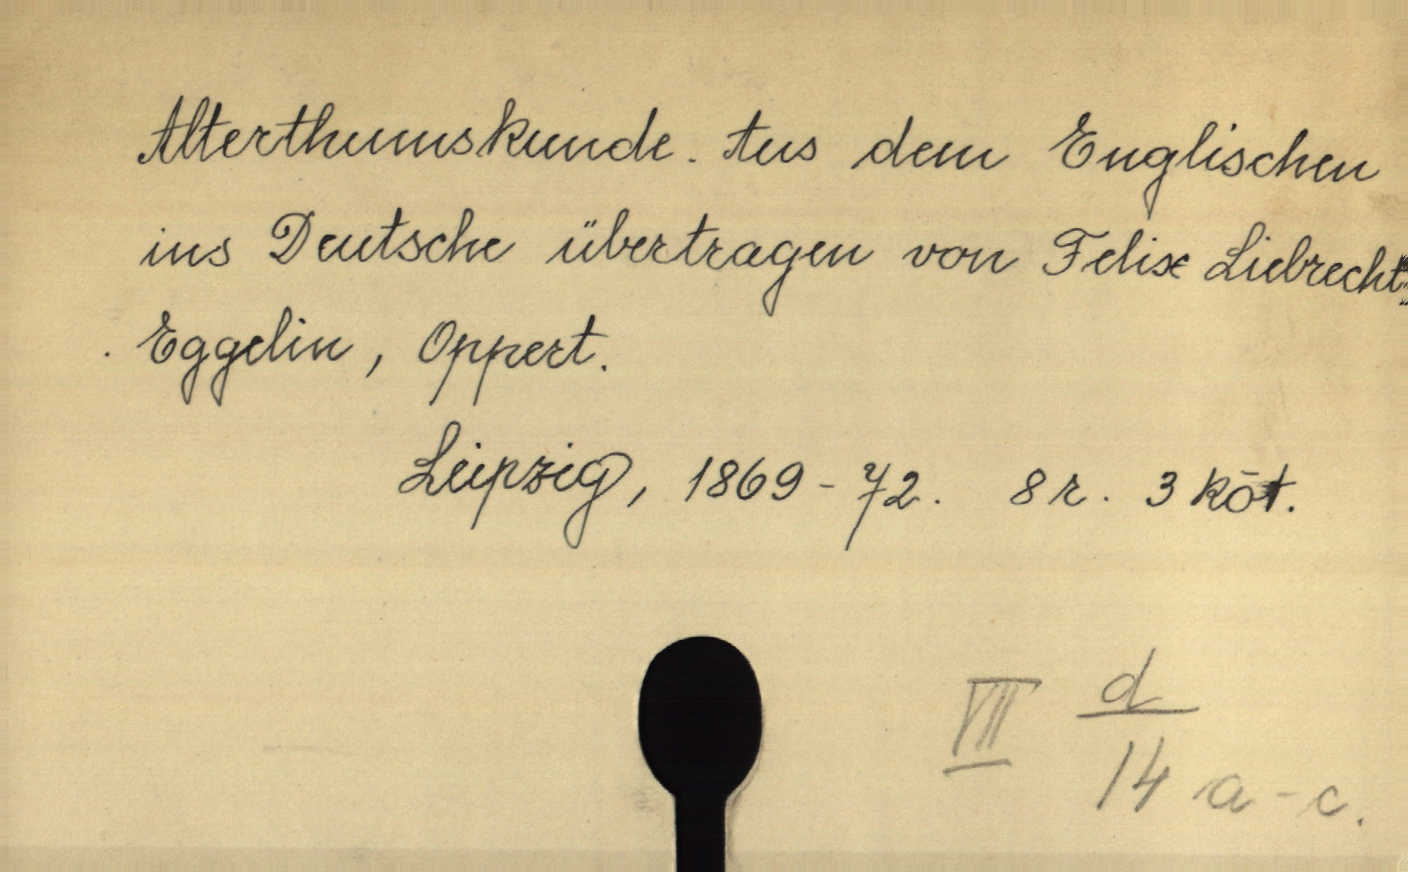 Alterthumskunde. Aus dem Englischen
ins Deutsche übertragen von Felix Liebrecht,
Eggelin, Oppert.
Leipzig, 1869-72. 8 r. 3 köt.
VII d
14 a-c.